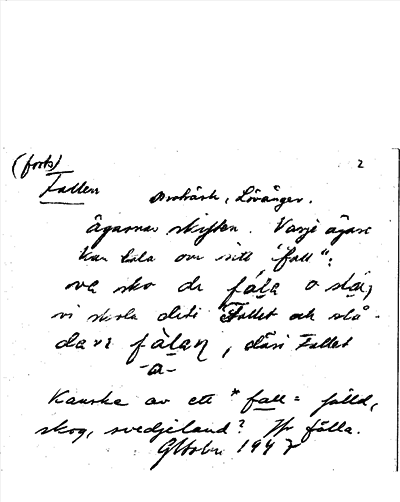 (forts) 2
Fallen
Broträsk, Lövånger.
ägarnas skiften. Varje ägare
kan tala om sitt "fall":
va sko de fála o slá,
vi skola dit i Fallet och slå.
da vi fàlan, däri Fallet
-a-
Kanske av ett *fall = fälld,
skog, svedjeland? Jfr fälla.
GHolm 1947